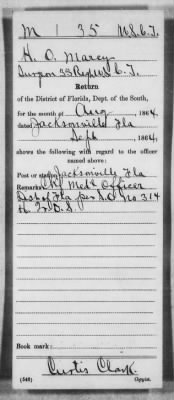 M | 35 | U.S.C.T.
H. O. Marcy
Surgeon 35 Regt U S C. T.
Return
of the District of Florida, Dept. of the South,
for the month of Aug, 1864,
dated Jacksonville Fla
Sept, 1864,
shows the following with regard to the officer
named above:
Post or station Jacksonville Fla
Remarks: Chf Med Officer
Dist of Fla per S.O. No 314
Book mark:
Curtis Clark.
(546) Copyist.